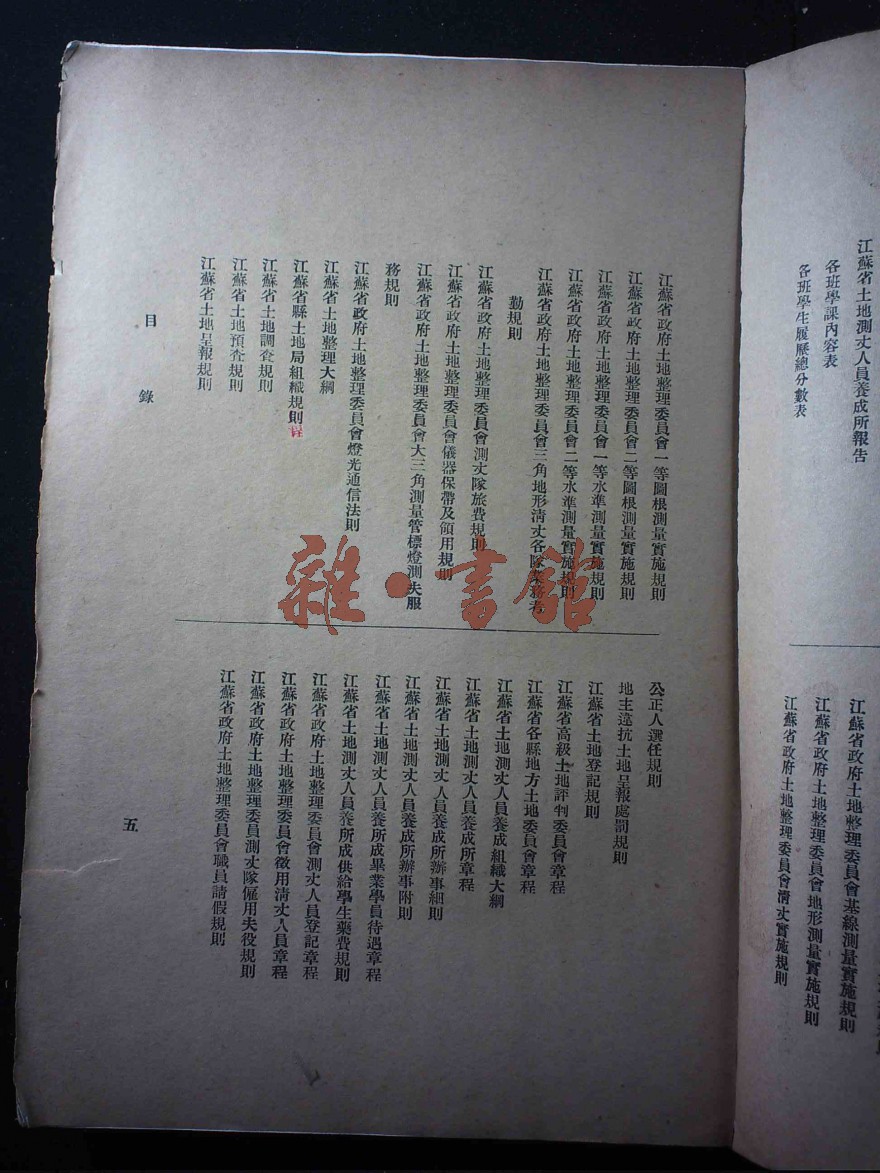 江蘇省土地測丈人員養成所報告
各班學課內容表
各班學生履歷總分數表
江蘇省政府土地整理委員會基線測量實施規則
江蘇省政府土地整理委員會地形測量實施規則
江蘇省政府土地整理委員會清丈實施規則
江蘇省政府土地整理委員會一等圖根測量實施規則
江蘇省政府土地整理委員會二等圖根測量實施規則
江蘇省政府土地整理委員會一等水準測量實施規則
江蘇省政府土地整理委員會二等水準測量實施規則
江蘇省政府土地整理委員會三角地形清丈各隊業務考
勤規則
江蘇省政府土地整理委員會測丈隊旅費規則
江蘇省政府土地整理委員會儀器保帶及領用規則
江蘇省政府土地整理委員會大三角測量管標燈測夫服
務規則
江蘇省政府土地整理委員會燈光通信法則
江蘇省土地整理大綱
江蘇省縣土地局組織規則程
江蘇省土地調查規則
江蘇省土地預查規則
江蘇省土地呈報規則
公正人選任規則
地主違抗土地呈報處罰規則
江蘇省土地登記規則
江蘇省高級土地評判委員會章程
江蘇省各縣地方土地委員會章程
江蘇省土地測丈人員養成組織大綱
江蘇省土地測丈人員養成所章程
江蘇省土地測丈人員養成所辦事細則
江蘇省土地測丈人員養成所辦事附則
江蘇省土地測丈人員養所成畢業學員待遇章程
江蘇省土地測丈人員養所成供給學生藥費規則
江蘇省政府土地整理委員會測丈人員登記章程
江蘇省政府土地整理委員會徵用清丈人員章程
江蘇省政府土地整理委員測丈隊僱用夫役規則
江蘇省政府土地整理委員會職員請假規則
目錄
五
雜·書館